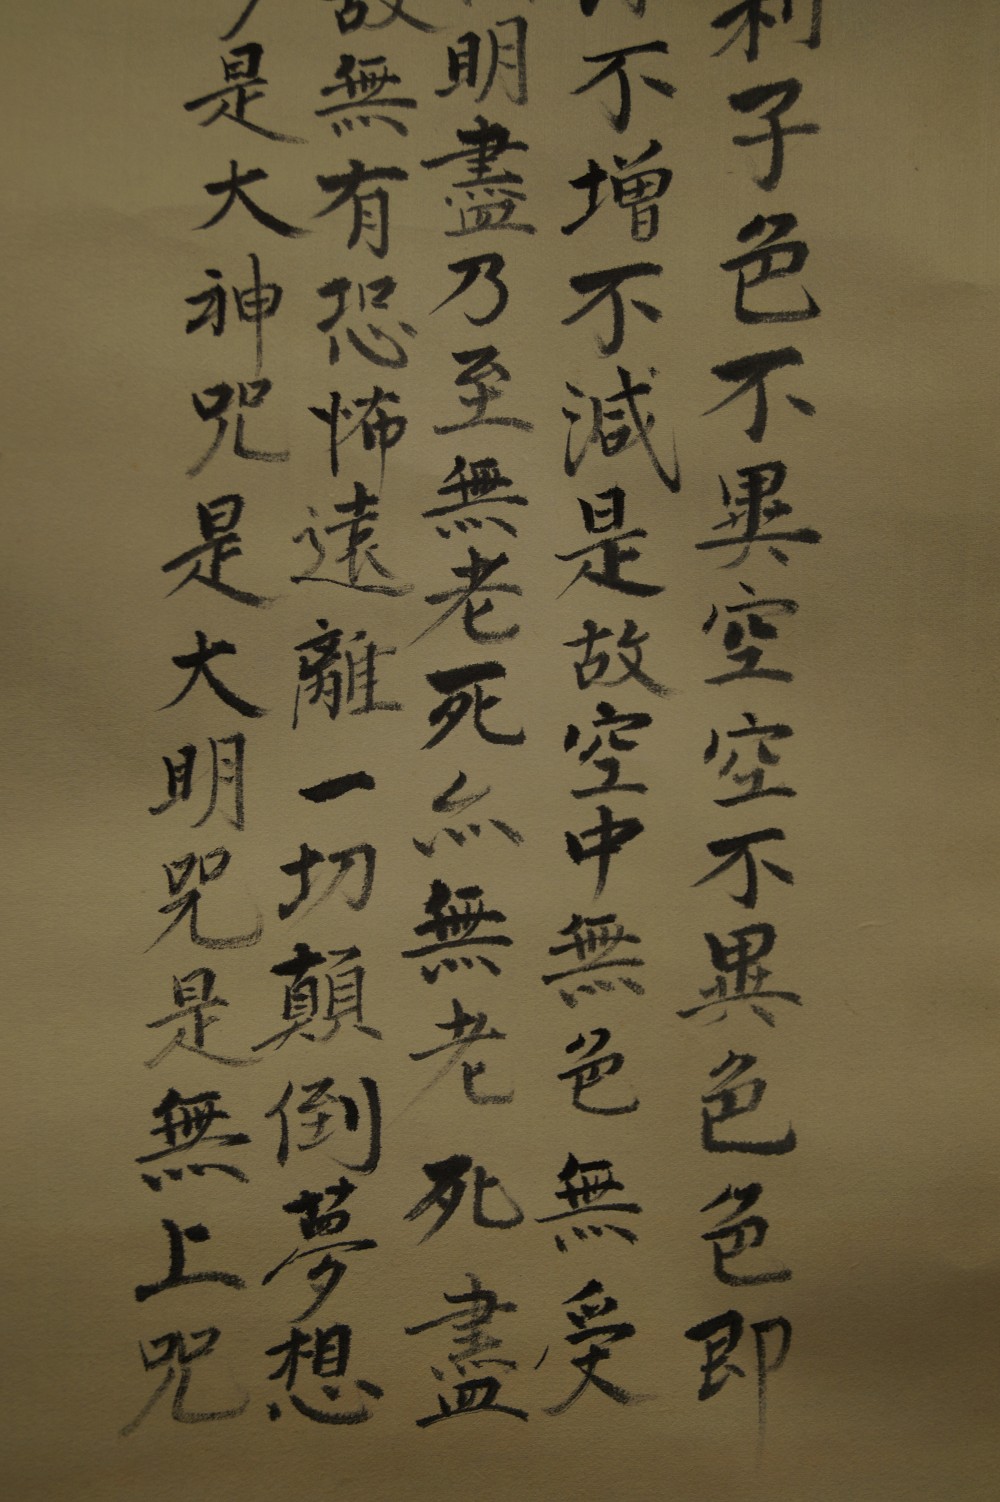 利子色不異空空不異色色即
不增不減是故空中無色無受
明盡乃至無老死亦無老死盡
故無有恐怖遠離一切顛倒夢想
是大神咒是大明咒是無上咒